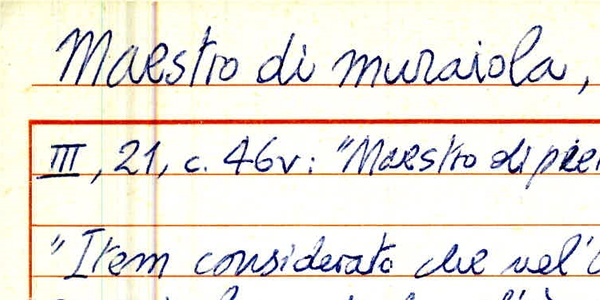 Maestro di muraiola,
III, 21, c. 46v: "Maestro di
"Item considerato che nel